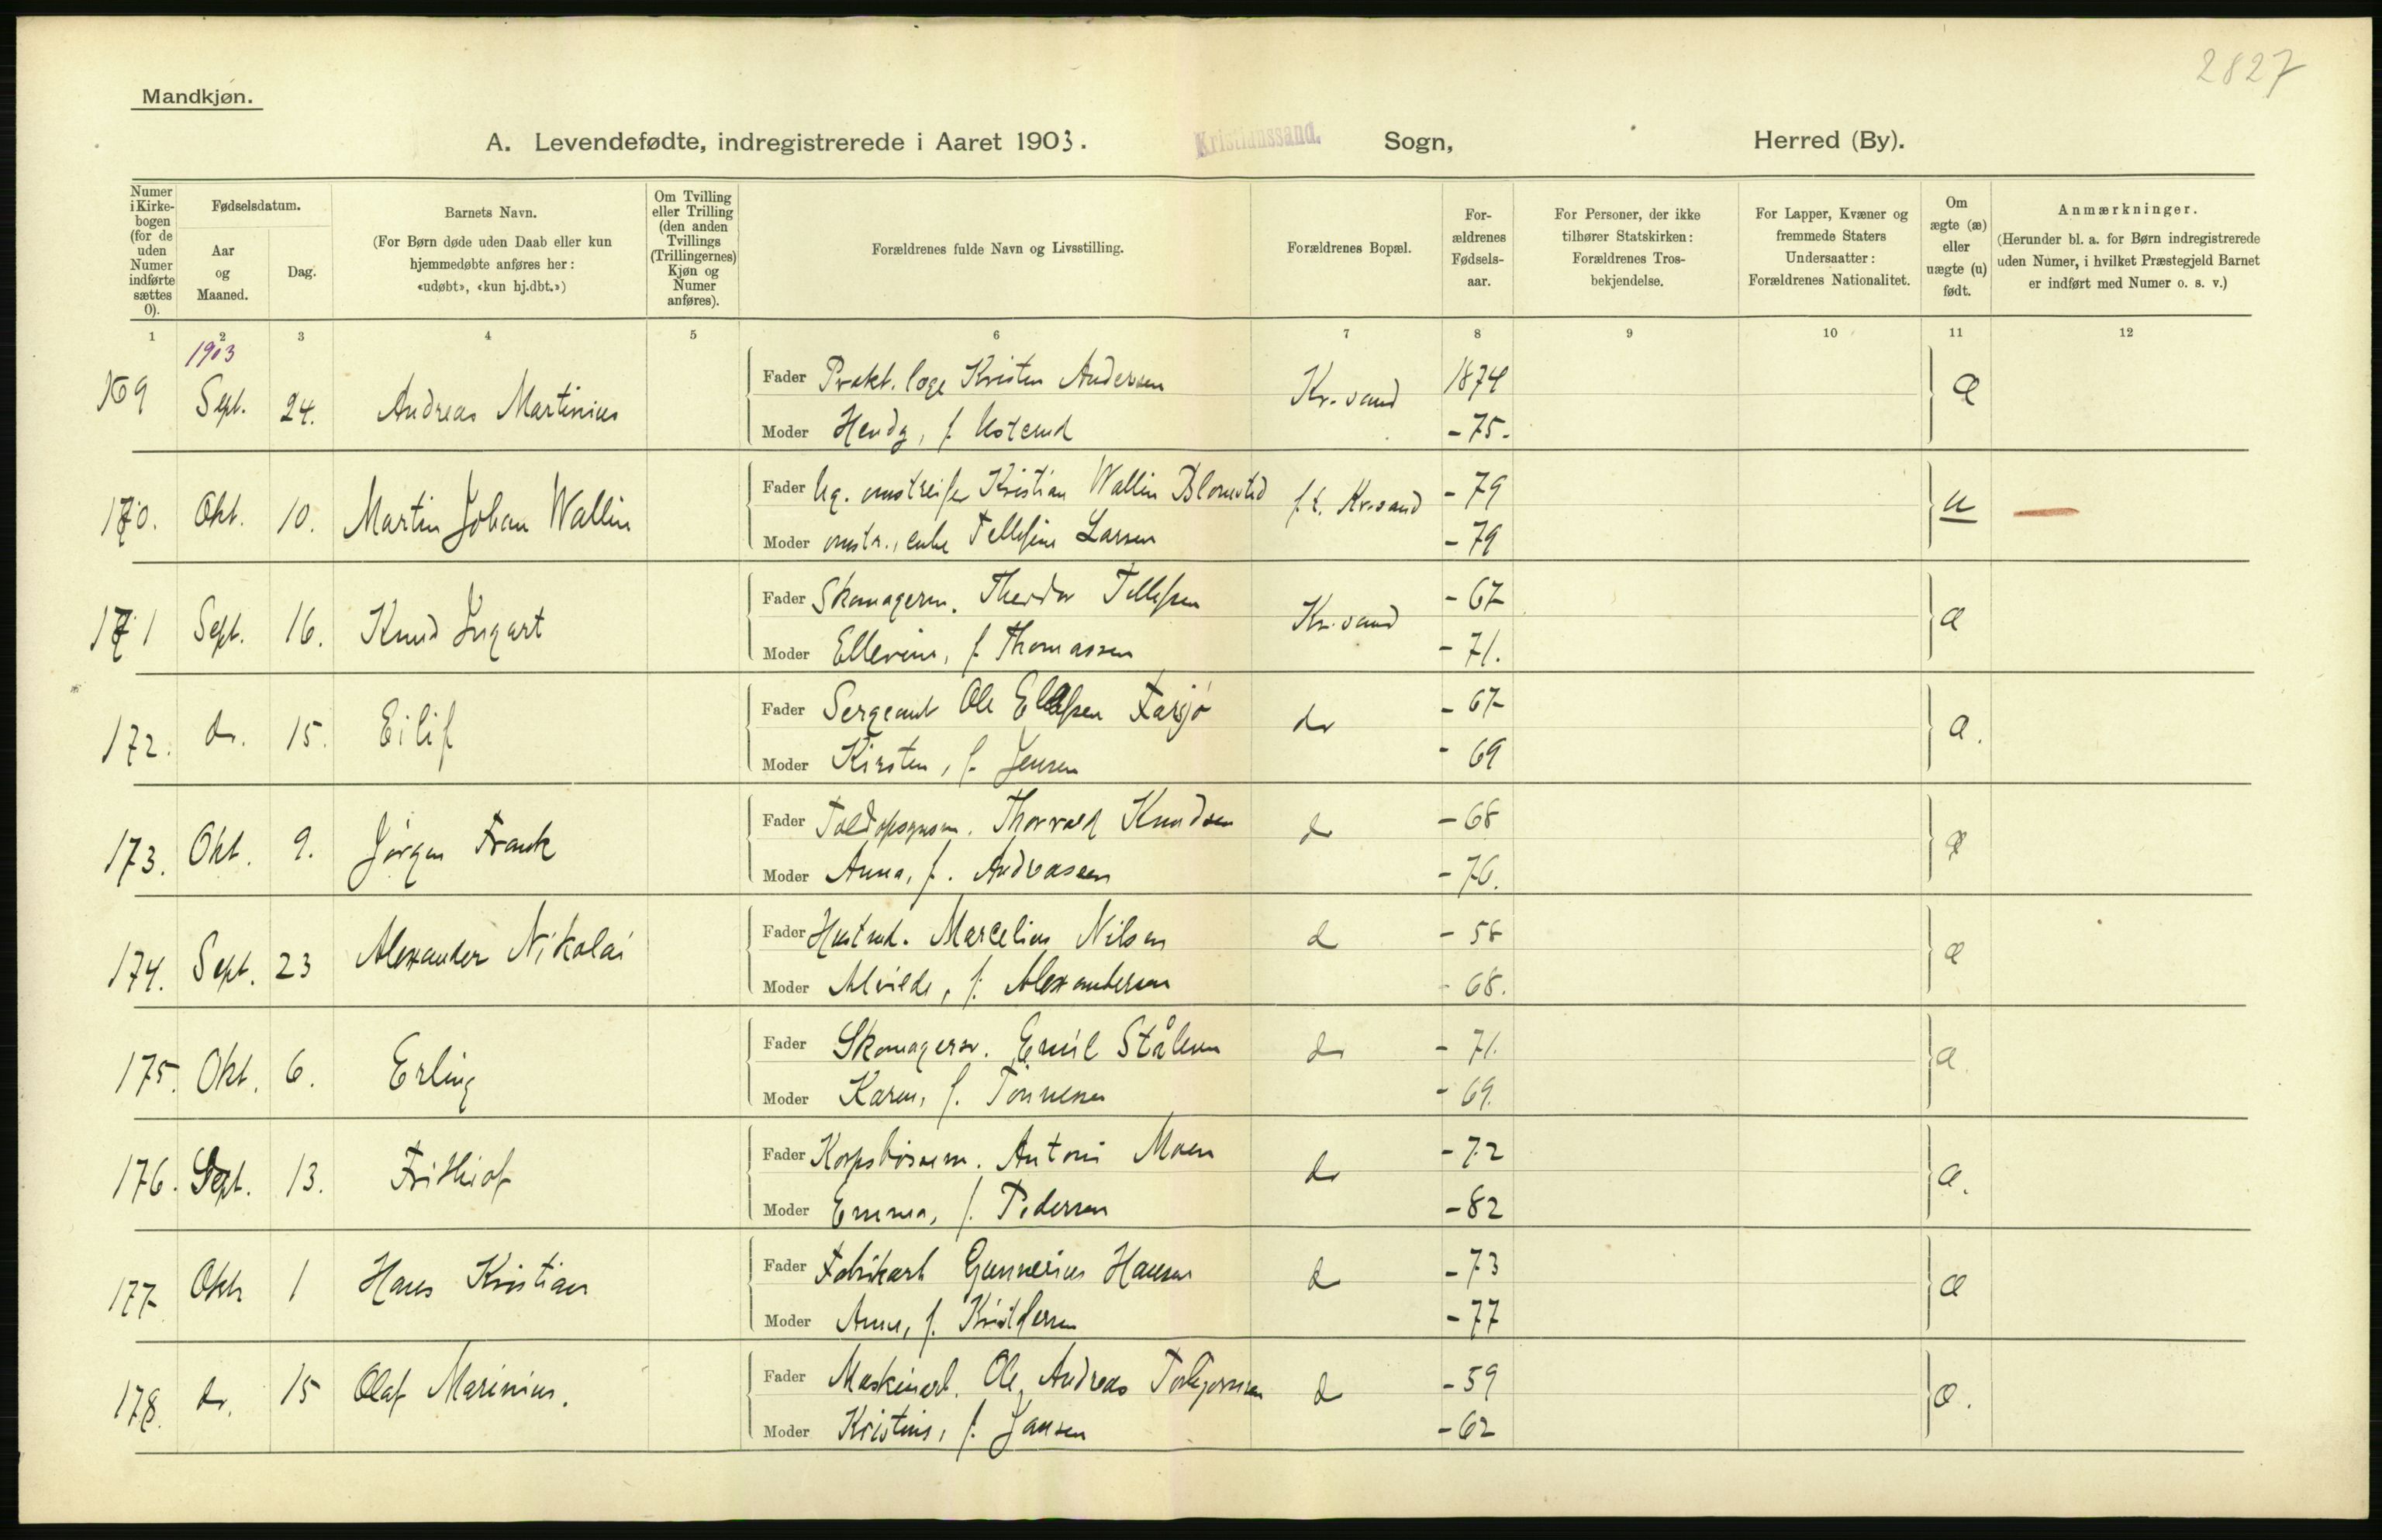 2827
Mandkjøn.
A. Levendefødte, indregistrerede i Aaret 1903. Kristianssand. Sogn, Herred (By).
Numer i Kirke-bogen (for de uden Numer indførte sættes 0).
Fødselsdatum.
Aar og Maaned.
Dag.
Barnets Navn.
(For Børn døde uden Daab eller kun hjemmedøbte anføres her: «udøbt», «kun hj.dbt.»)
Om Tvilling eller Trilling (den anden Tvillings (Trillingernes) Kjøn og Numer anføres).
Forældrenes fulde Navn og Livsstilling.
Forældrenes Bopæl.
For-ældrenes Fødsels-aar.
For Personer, der ikke tilhører Statskirken: Forældrenes Tros-bekjendelse.
For Lapper, Kvæner og fremmede Staters Undersaatter: Forældrenes Nationalitet.
Om ægte (æ) eller uægte (u) født.
Anmærkninger.
(Herunder bl. a. for Børn indregistrerede uden Numer, i hvilket Præstegjeld Barnet er indført med Numer o. s. v.)
1 2 3 4 5 6 7 8 9 10 11 12
1903
169 Sept. 24. Andreas Martinius Fader Prakt. læge Kristen Andersen Kr.sand 1874 æ
Moder f. - 75.
170. Okt. 10. Martin Johan Wallin Fader Ug. omstreifer Kristian Wallin Blomstid f.t. Kr.sand - 79 u
Moder omstr., enke Tellefine Larsen - 79
171 Sept. 16. Knud Ingart Fader Skomagerm. Theodor Tellefsen Kr.sand - 67 æ
Moder Ellevine, f. Thomassen - 71.
172. do. 15. Eilif Fader Sergeant Ole Ellefsen Farsjø do - 67 æ.
Moder Kirsten, f. Jensen - 69
173. Okt. 9. Jørgen Frank Fader Toldopsynsm. Thorvald Knudsen do - 68 æ
Moder Anna, f. Andreasen - 76.
174. Sept. 23 Alexander Nikolai Fader Marcelius Nilsen do - 58 æ
Moder Alvilde, f. Alexandersen - 68.
175. Okt. 6. Erling Fader Skomagersv. Emil Stålesen do - 71. æ
Moder Karen, f. Tønnesen - 69.
176. Sept. 13. Frithjof Fader Korpsbøssem. Antoni Moen do - 72 æ.
Moder Emma, f. Pedersen - 82
177 Okt 1 Hans Kristian Fader Fabrikarb Gunnerius Hansen do - 73 æ
Moder Anne, f. - 77
178. do. 15 Olaf Marinius. Fader Maskinarb. Ole Andreas Torbjørnsen do - 59 æ.
Moder Kristine, f. Jansen - 62